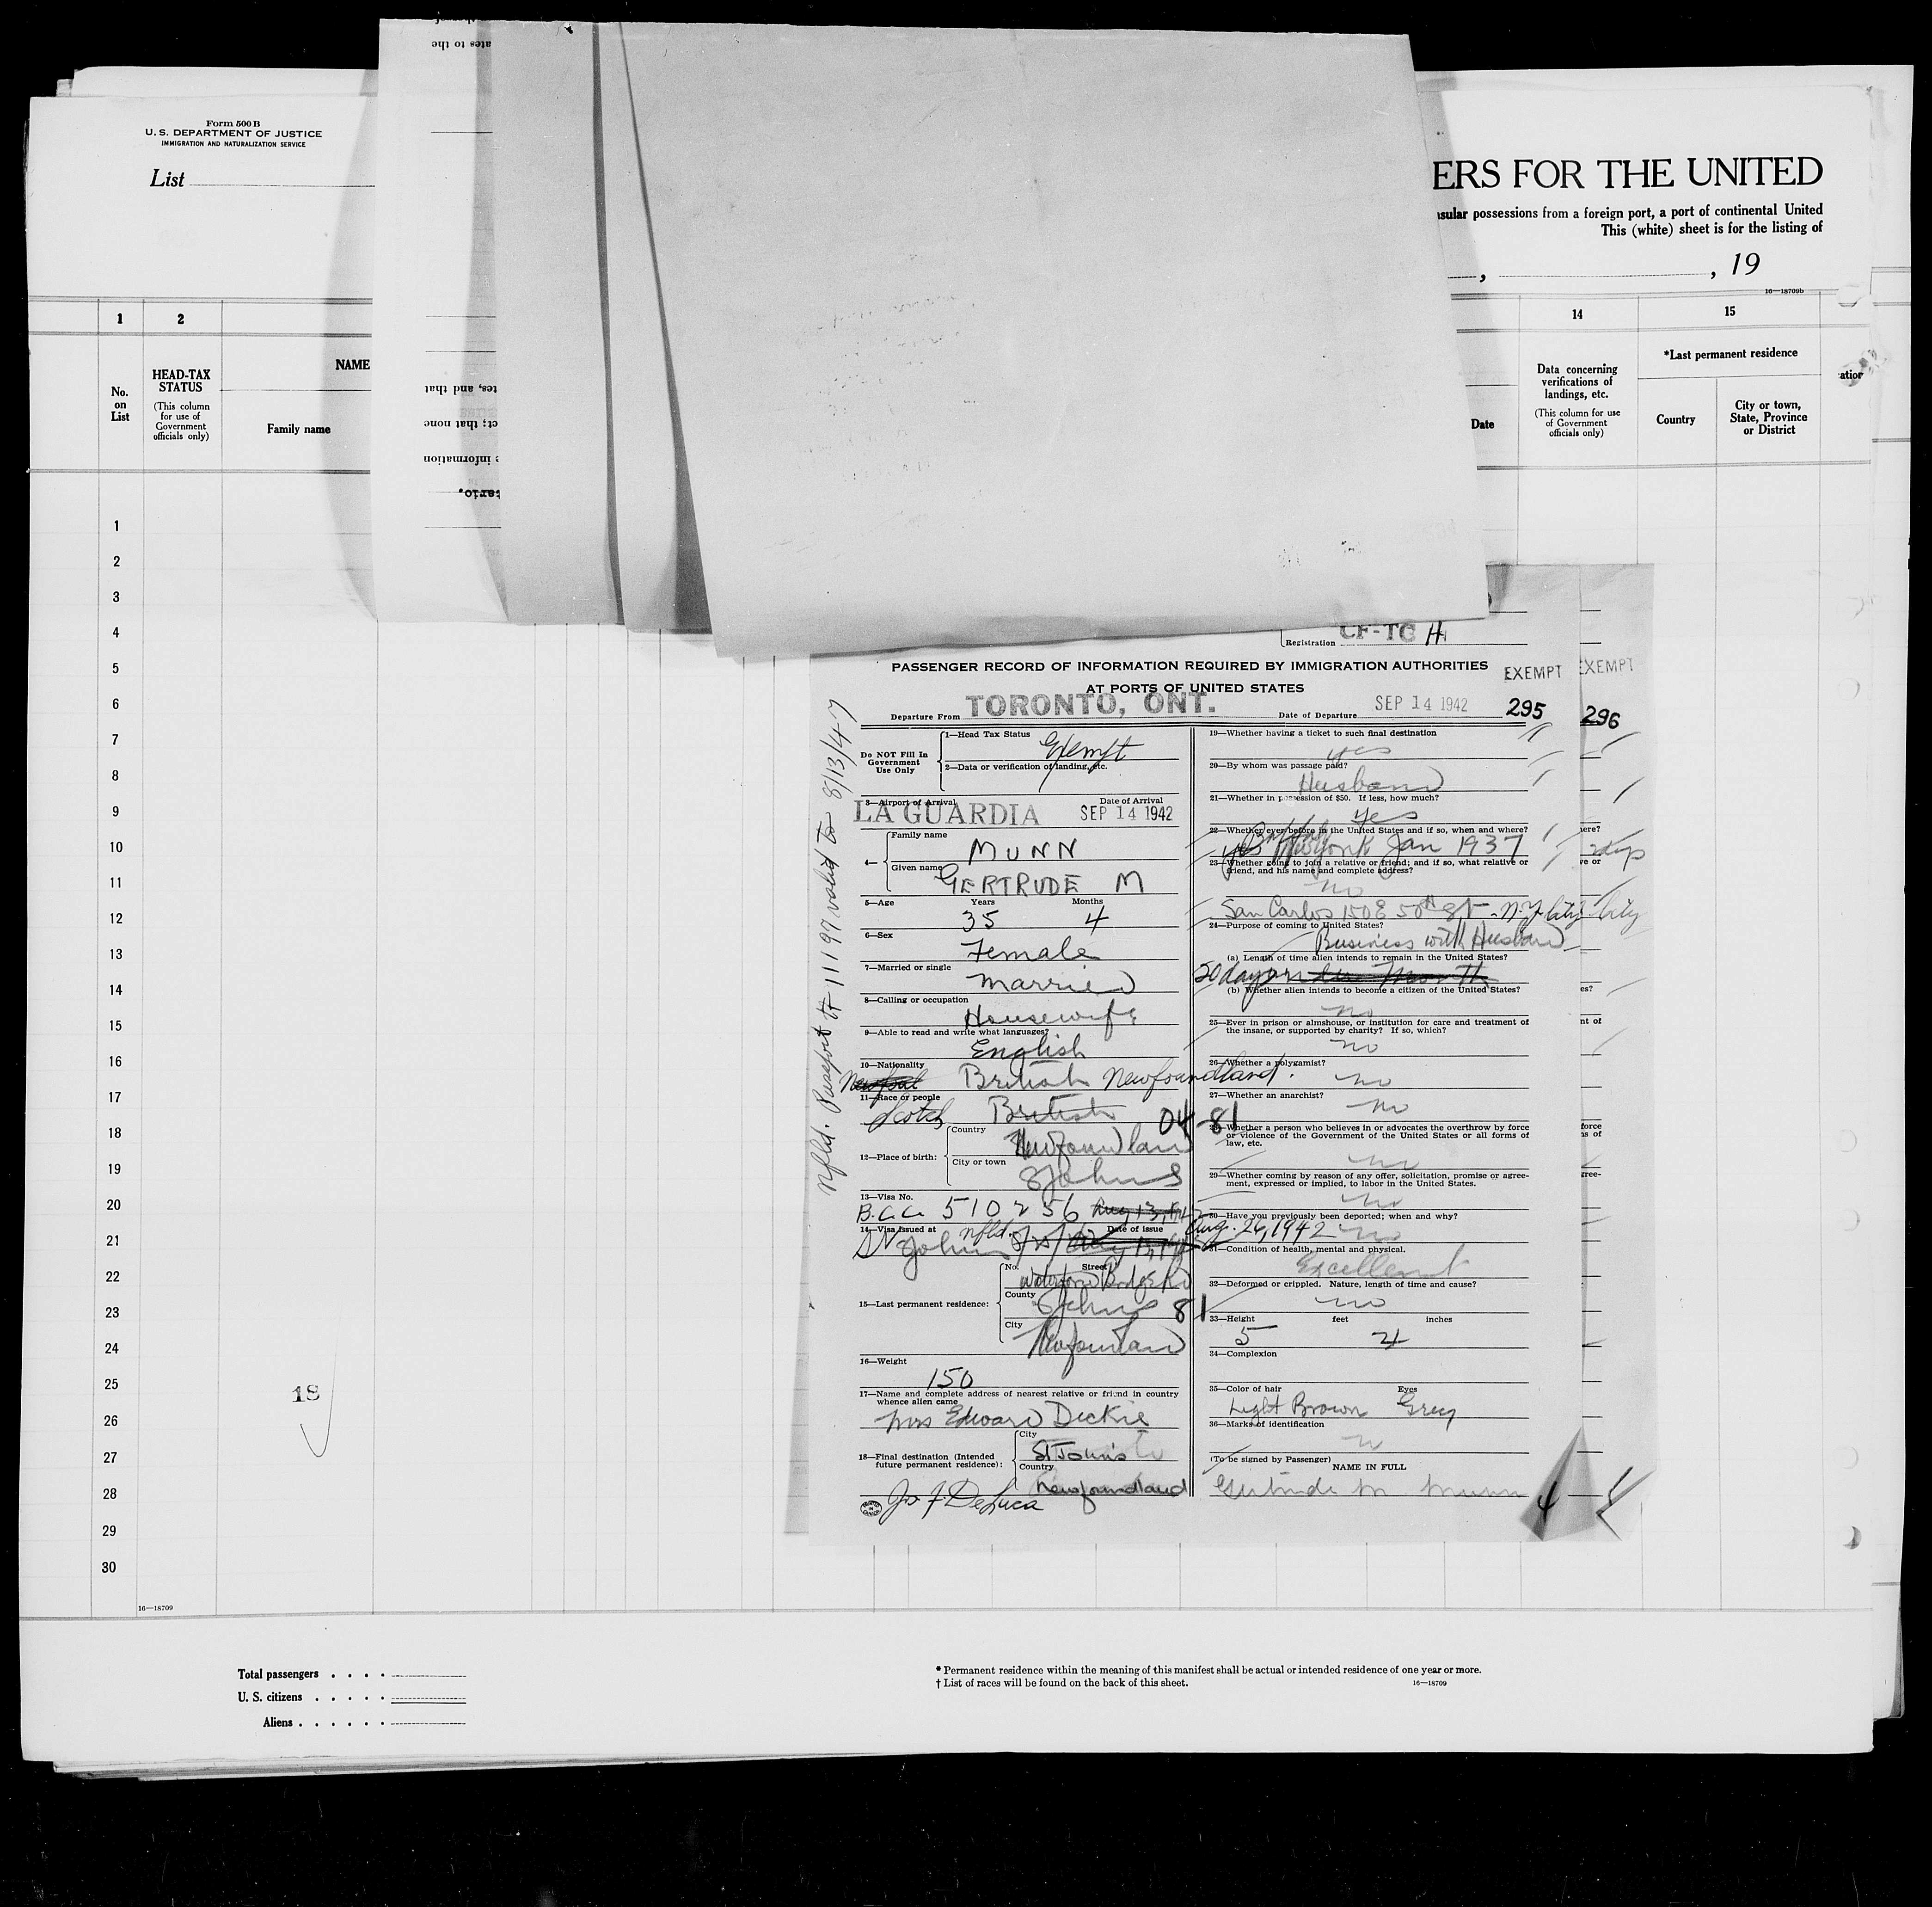 Form 500 B
U. S. DEPARTMENT OF JUSTICE
IMMIGRATION AND NATURALIZATION SERVICE
List
ates to the
tes, and that
ct; that none
e information
tario.
ERS FOR THE UNITED
nsular possessions from a foreign port, a port of continental United
This (white) sheet is for the listing of
, , 19
16—18709b
1 2 14 15
No. on List
HEAD-TAX STATUS
(This column for use of Government officials only)
NAME
Family name
Date
Data concerning verifications of landings, etc.
(This column for use of Government officials only)
*Last permanent residence
Country
City or town, State, Province or District
1
2
3
4
5
6
7
8
9
10
11
12
13
14
15
16
17
18
19
20
21
22
23
24
25
26
27
28
29
30
18
16—18709
Registration CF-TC H
PASSENGER RECORD OF INFORMATION REQUIRED BY IMMIGRATION AUTHORITIES
AT PORTS OF UNITED STATES
EXEMPT
EXEMPT
Departure From TORONTO, ONT. Date of Departure SEP 14 1942
295
296
Nfld. Passport # 11197 valid to 8/13/47
Do NOT Fill In
Government
Use Only
1—Head Tax Status Exempt
2—Data or verification of landing, etc.
3—Airport of Arrival Date of Arrival
LA GUARDIA SEP 14 1942
4— Family name MUNN
Given name GERTRUDE M
5—Age Years Months
35 4
6—Sex
Female
7—Married or single
Married
8—Calling or occupation
Housewife
9—Able to read and write what languages?
English
10—Nationality
British Newfoundland.
11—Race or people
Scotch British 04 - 81
12—Place of birth: Country Newfoundland
City or town St Johns
13—Visa No.
B.C.C. 510256 Aug 13, 1942
14—Visa issued at Date of issue
St Johns nfld. Aug. 26, 1942
15—Last permanent residence: No. Street
Waterford Bridge Rd
County St Johns 81
City Newfoundland
16—Weight
150
17—Name and complete address of nearest relative or friend in country
whence alien came
Mrs Edward Dickie
18—Final destination (Intended
future permanent residence): City St John's
Country Newfoundland
Jos F. DeLuca
19—Whether having a ticket to such final destination
yes
20—By whom was passage paid?
Husband
21—Whether in possession of $50. If less, how much?
Yes
22—Whether ever before in the United States and if so, when and where?
yes New York Jan 1937
23—Whether going to join a relative or friend; and if so, what relative or
friend, and his name and complete address?
no
San Carlos 150 E 50th St - N.Y. City
24—Purpose of coming to United States?
Business with Husband
(a) Length of time alien intends to remain in the United States?
20 days
(b) Whether alien intends to become a citizen of the United States?
no
25—Ever in prison or almshouse, or institution for care and treatment of
the insane, or supported by charity? If so, which?
no
26—Whether a polygamist?
no
27—Whether an anarchist?
no
28—Whether a person who believes in or advocates the overthrow by force
or violence of the Government of the United States or all forms of
law, etc.
no
29—Whether coming by reason of any offer, solicitation, promise or agree-
ment, expressed or implied, to labor in the United States.
no
30—Have you previously been deported; when and why?
no
31—Condition of health, mental and physical.
Excellent
32—Deformed or crippled. Nature, length of time and cause?
no
33—Height feet inches
5 4
34—Complexion
35—Color of hair Eyes
Light Brown Grey
36—Marks of identification
no
(To be signed by Passenger)
NAME IN FULL
Gertrude M Munn
4
ere?
ve or
City
es?
nt of
force
ms of
gree-
Total passengers . . . .
U. S. citizens . . . . .
Aliens . . . . . .
* Permanent residence within the meaning of this manifest shall be actual or intended residence of one year or more.
† List of races will be found on the back of this sheet.
16—18709